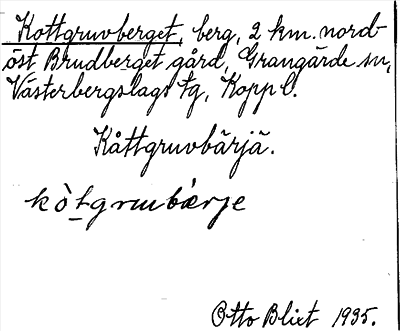 Kottgruvberget, berg, 2 km. nord-
öst Brudberget gård, Grangärde sn,
Västerbergslags tg, Kopp l.
Kåttgruvbärjä.
kòtgruvbärje
Otto Blixt 1935.